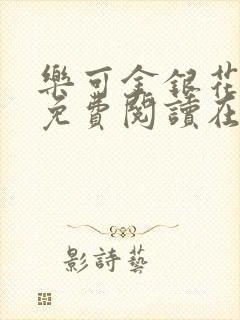 樂可金銀花
免費閱讀在
影詩藝